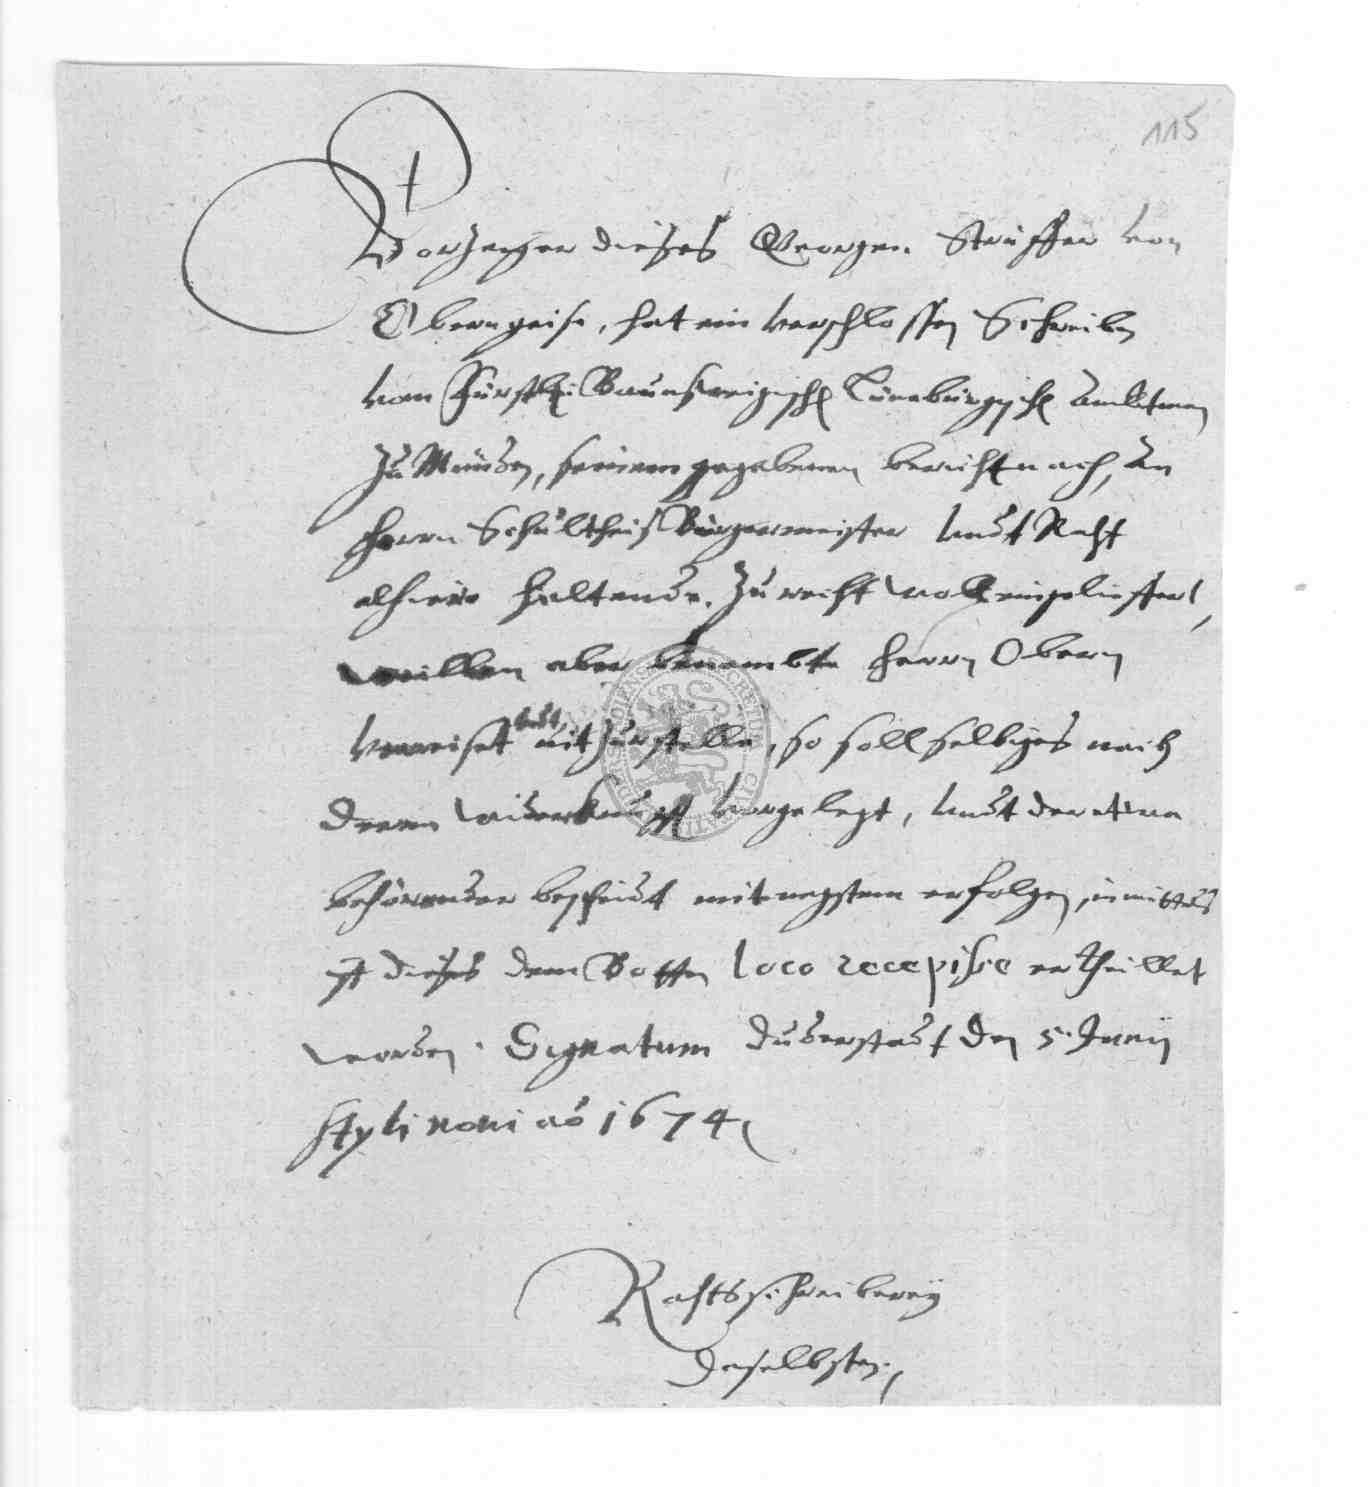 115
Vorzeiger dieses Georgen Strüffer von
Oberngeise, hat ein verschlossen Schreiben
vom Fürstl: Braunschweigisch Lüneburgisch Ambtman
zu Münden, seinem gegebenen bericht nach, an
Herrn Schultheis Bürgermeister undt Raht
alhiero haltende, zu recht woll eingelieffert,
weillen aber benembte Herrn Obern
verreiset undt nit zur stelle, so soll selbiges nach
deren wiederkunfft vorgelegt, undt der etwa
behörender bescheidt mit negstem erfolgen, inmittels
ist dieses dem Botten loco recepisse ertheillet
worden. Signatum Duderstadt den 5. Junij
styli novi ao 1674
Rahtsschreiberey
daselbsten